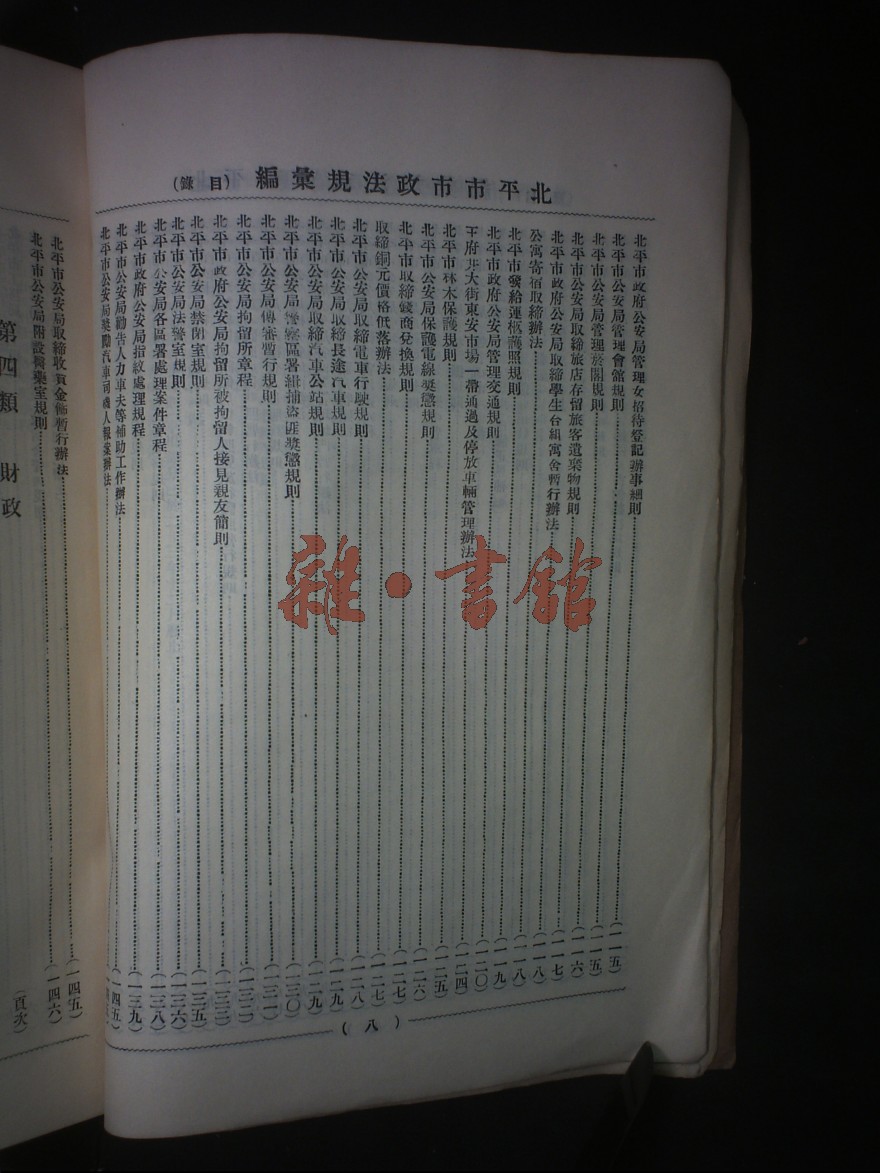 北平市市政法規彙編（目錄）
北平市政府公安局管理女招待登記辦事細則（一一五）
北平市公安局管理會館規則（一一五）
北平市公安局管理菸閣規則（一一六）
北平市公安局取締旅店存留旅客遺棄物規則（一一七）
北平市政府公安局取締學生台組寓舍暫行辦法（一一八）
公寓寄宿取締辦法（一一八）
北平市發給運柩護照規則（一一九）
北平市政府公安局管理交通規則（一二〇）
王府井大街東安市場一帶通過及停放車輛管理辦法（一二四）
北平市林木保護規則（一二五）
北平市公安局保護電線奬懲規則（一二六）
北平市取締錢商兌換規則（一二七）
取締銅元價格低落辦法（一二七）
北平市公安局取締電車行駛規則（一二八）
北平市公安局取締長途汽車規則（一二九）
北平市公安局取締汽車公站規則（一二九）
北平市公安局警察區署緝捕盜匪奬懲規則（一三〇）
北平市公安局傳審暫行規則（一三一）
北平市公安局拘留所章程（一三二）
北平市政府公安局拘留所被拘留人接見親友簡則（一三三）
北平市公安局禁閉室規則（一三五）
北平市公安局法警室規則（一三六）
北平市公安局各區署處理案件章程（一三八）
北平市政府公安局指紋處理規程（一三九）
北平市公安局勸告人力車夫等補助工作辦法（一四五）
北平市公安局奬勵汽車司機人報案辦法
（八）
北平市公安局取締收買金佛暫行辦法（一四五）
北平市公安局附設醫藥室規則（一四六）
第四類　財政（頁次）
雜·書館